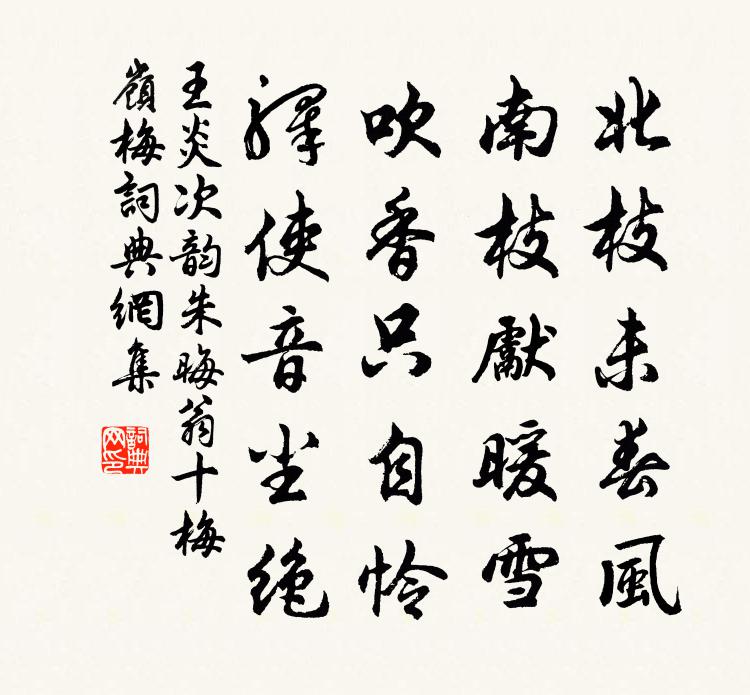 北枝未春風
南枝獻暖雪
吹香只自怜
驛使音尘絶
王炎次韵朱晦翁十梅
嶺梅詞典網集
詞典
网印